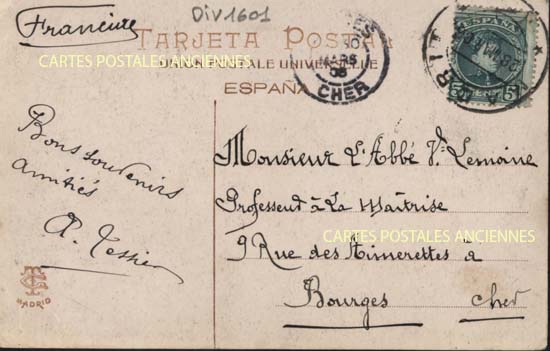 Div1601
Francia
TARJETA POSTAL
CARTES POSTALES ANCIENNES
UNIVERSELLE
ESPAÑA
MARS
08
CHER
ESPAÑA
5 5
Bons souvenirs
amitiés
A. Tessier
Monsieur l'Abbé Vr. Lemoine
Professeur à La Maîtrise
CARTES POSTALES ANCIENNES
9 Rue des Aimerettes à
Bourges Cher
MADRID